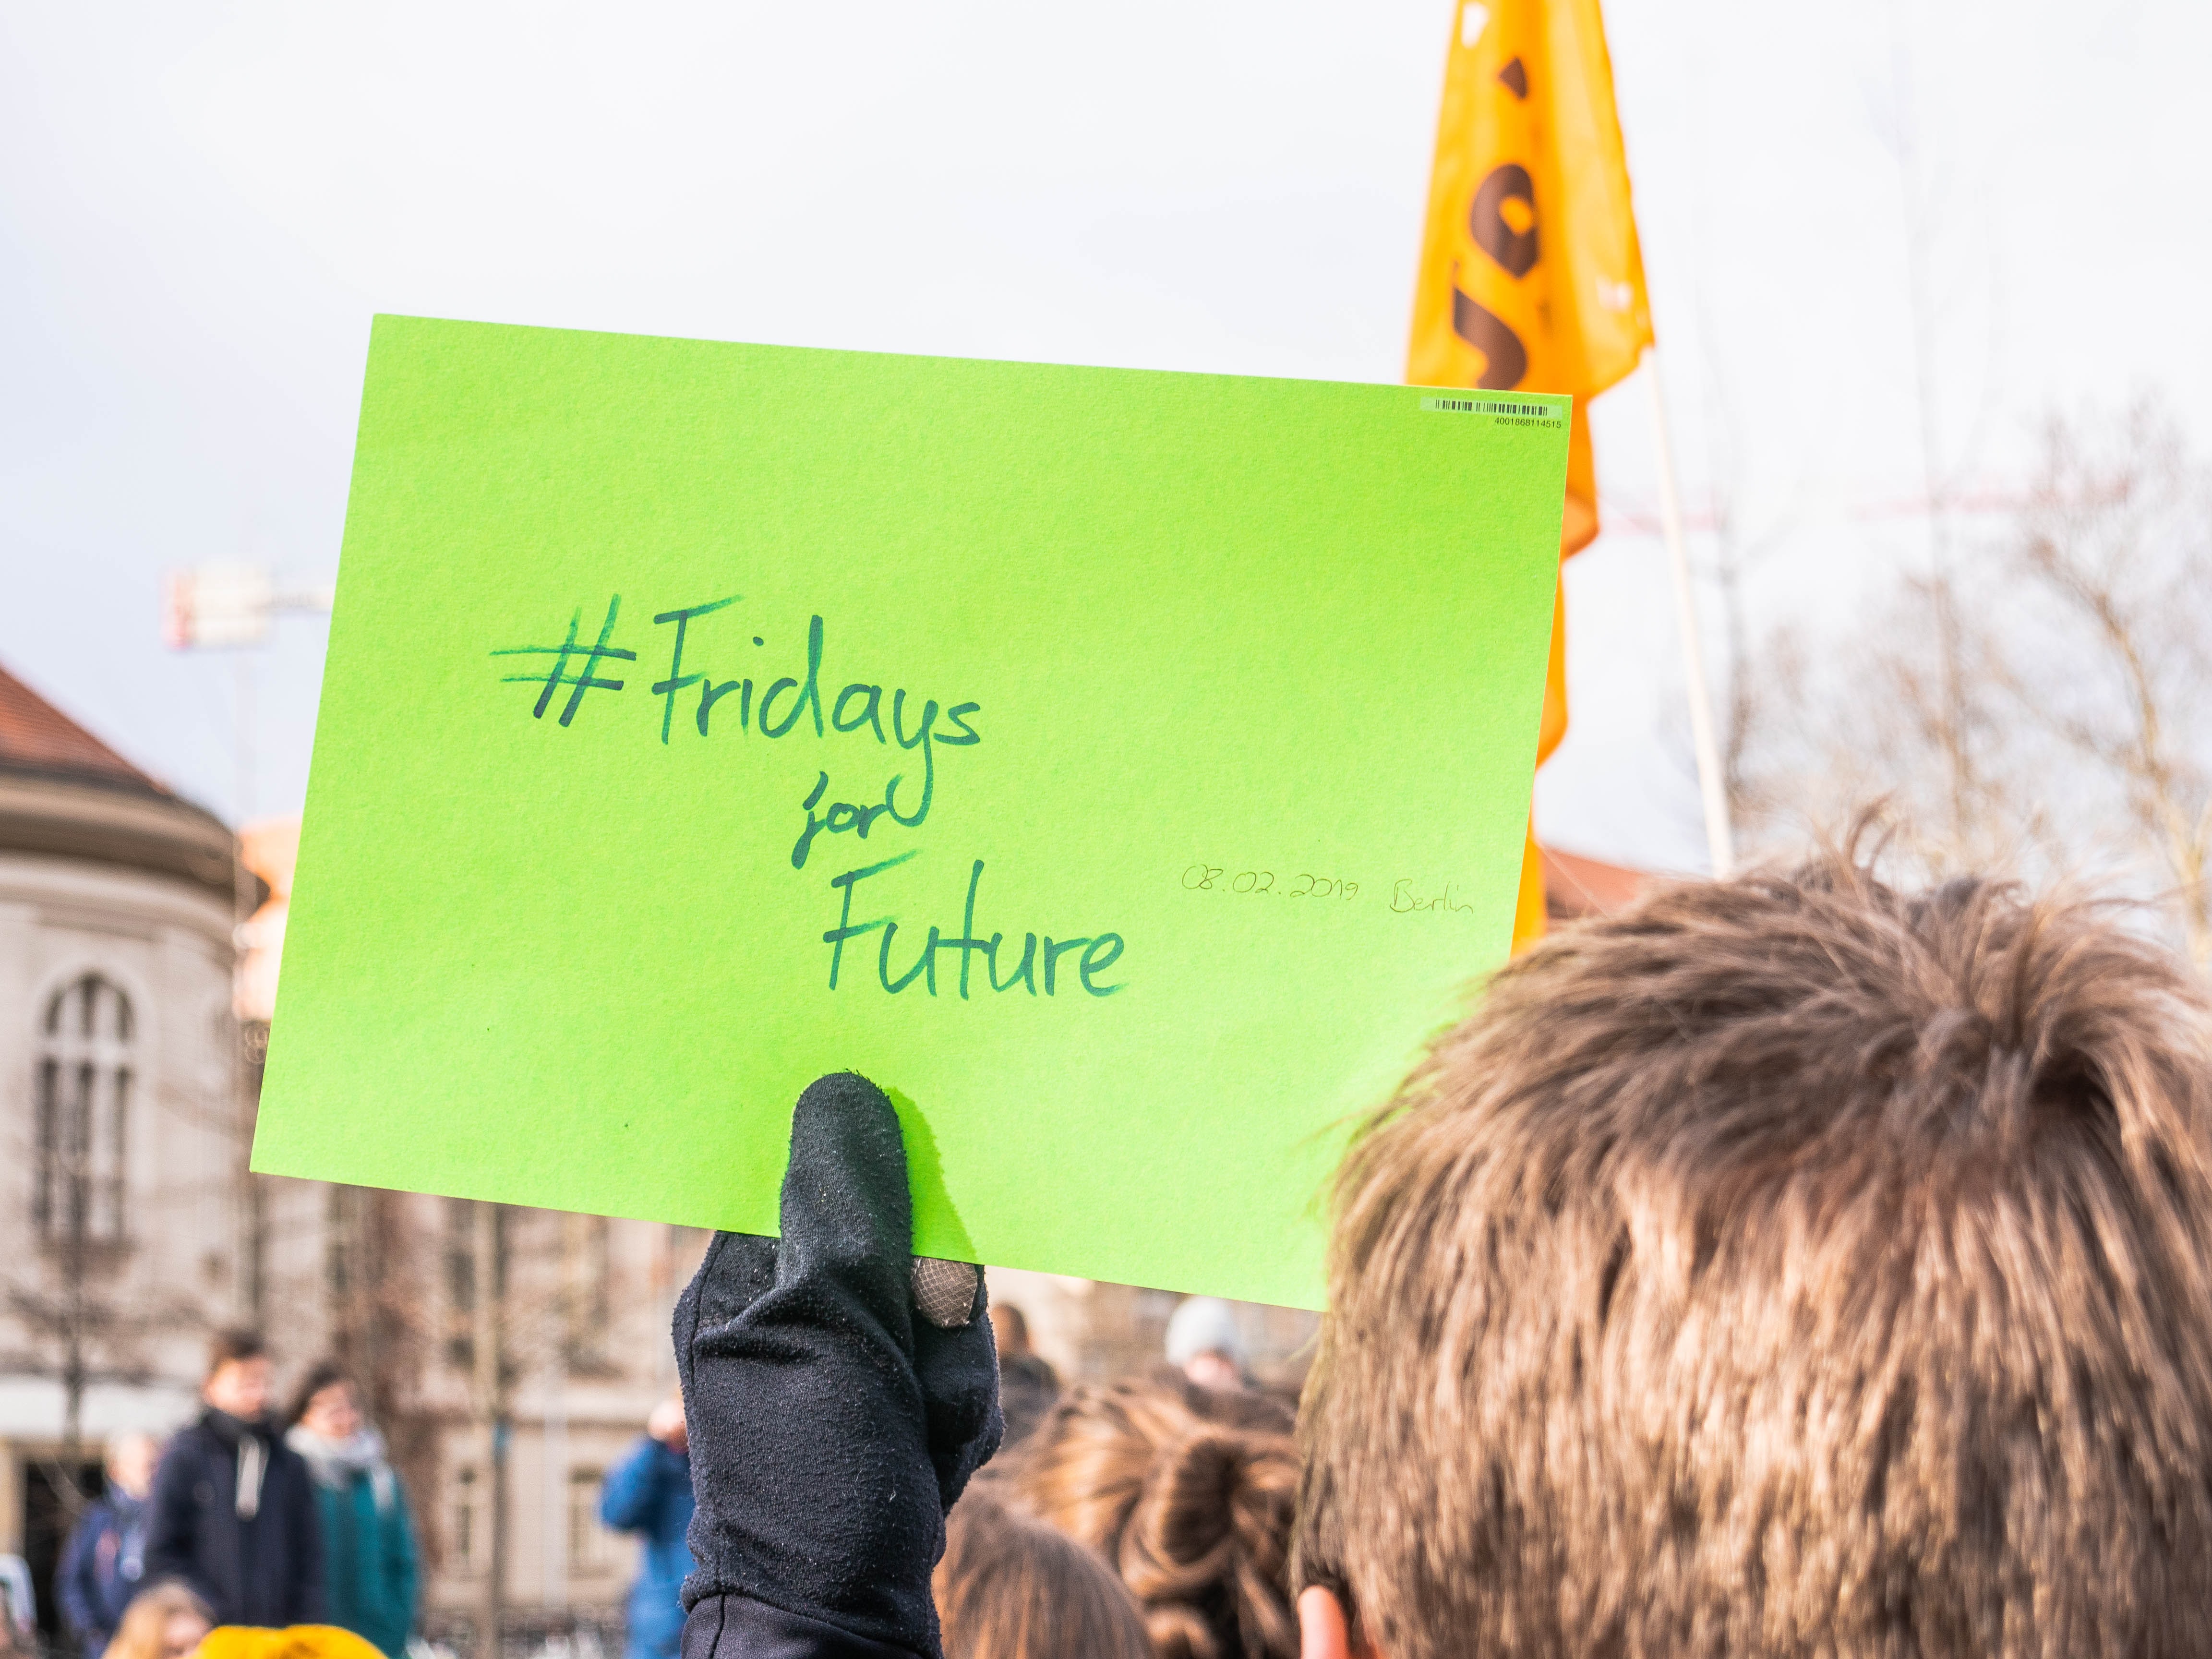 4001868114515
#Fridays
for
Future
08.02.2019 Berlin